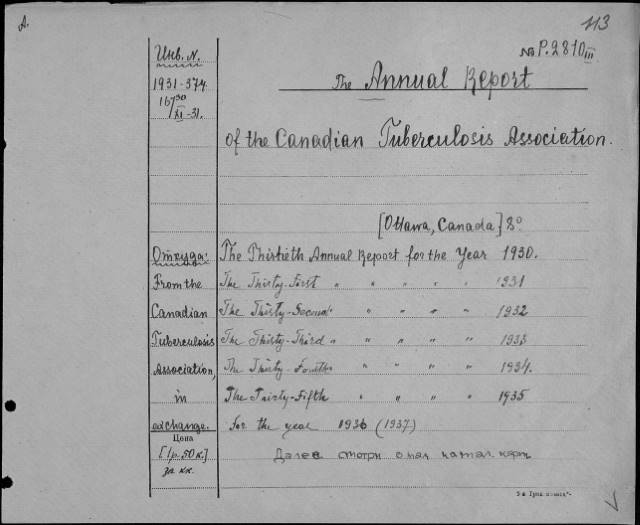 A.
113
№ P.2810 III
Инв. N.
1931-374
The Annual Report
of the Canadian Tuberculosis Association.
[Ottawa, Canada] 8°
Откуда: The Thirtieth Annual Report for the Year 1930.
From the The Thirty-First " " " " " 1931
Canadian The Thirty-Second " " " " " 1932
Tuberculosis The Thirty-Third " " " " " 1933
Association, The Thirty-Fourth " " " " 1934.
in The Thirty-Fifth " " " " " 1935
exchange. For the year 1936 (1937)
Цена
[1р.50к.]
за кк.
Далее смотри